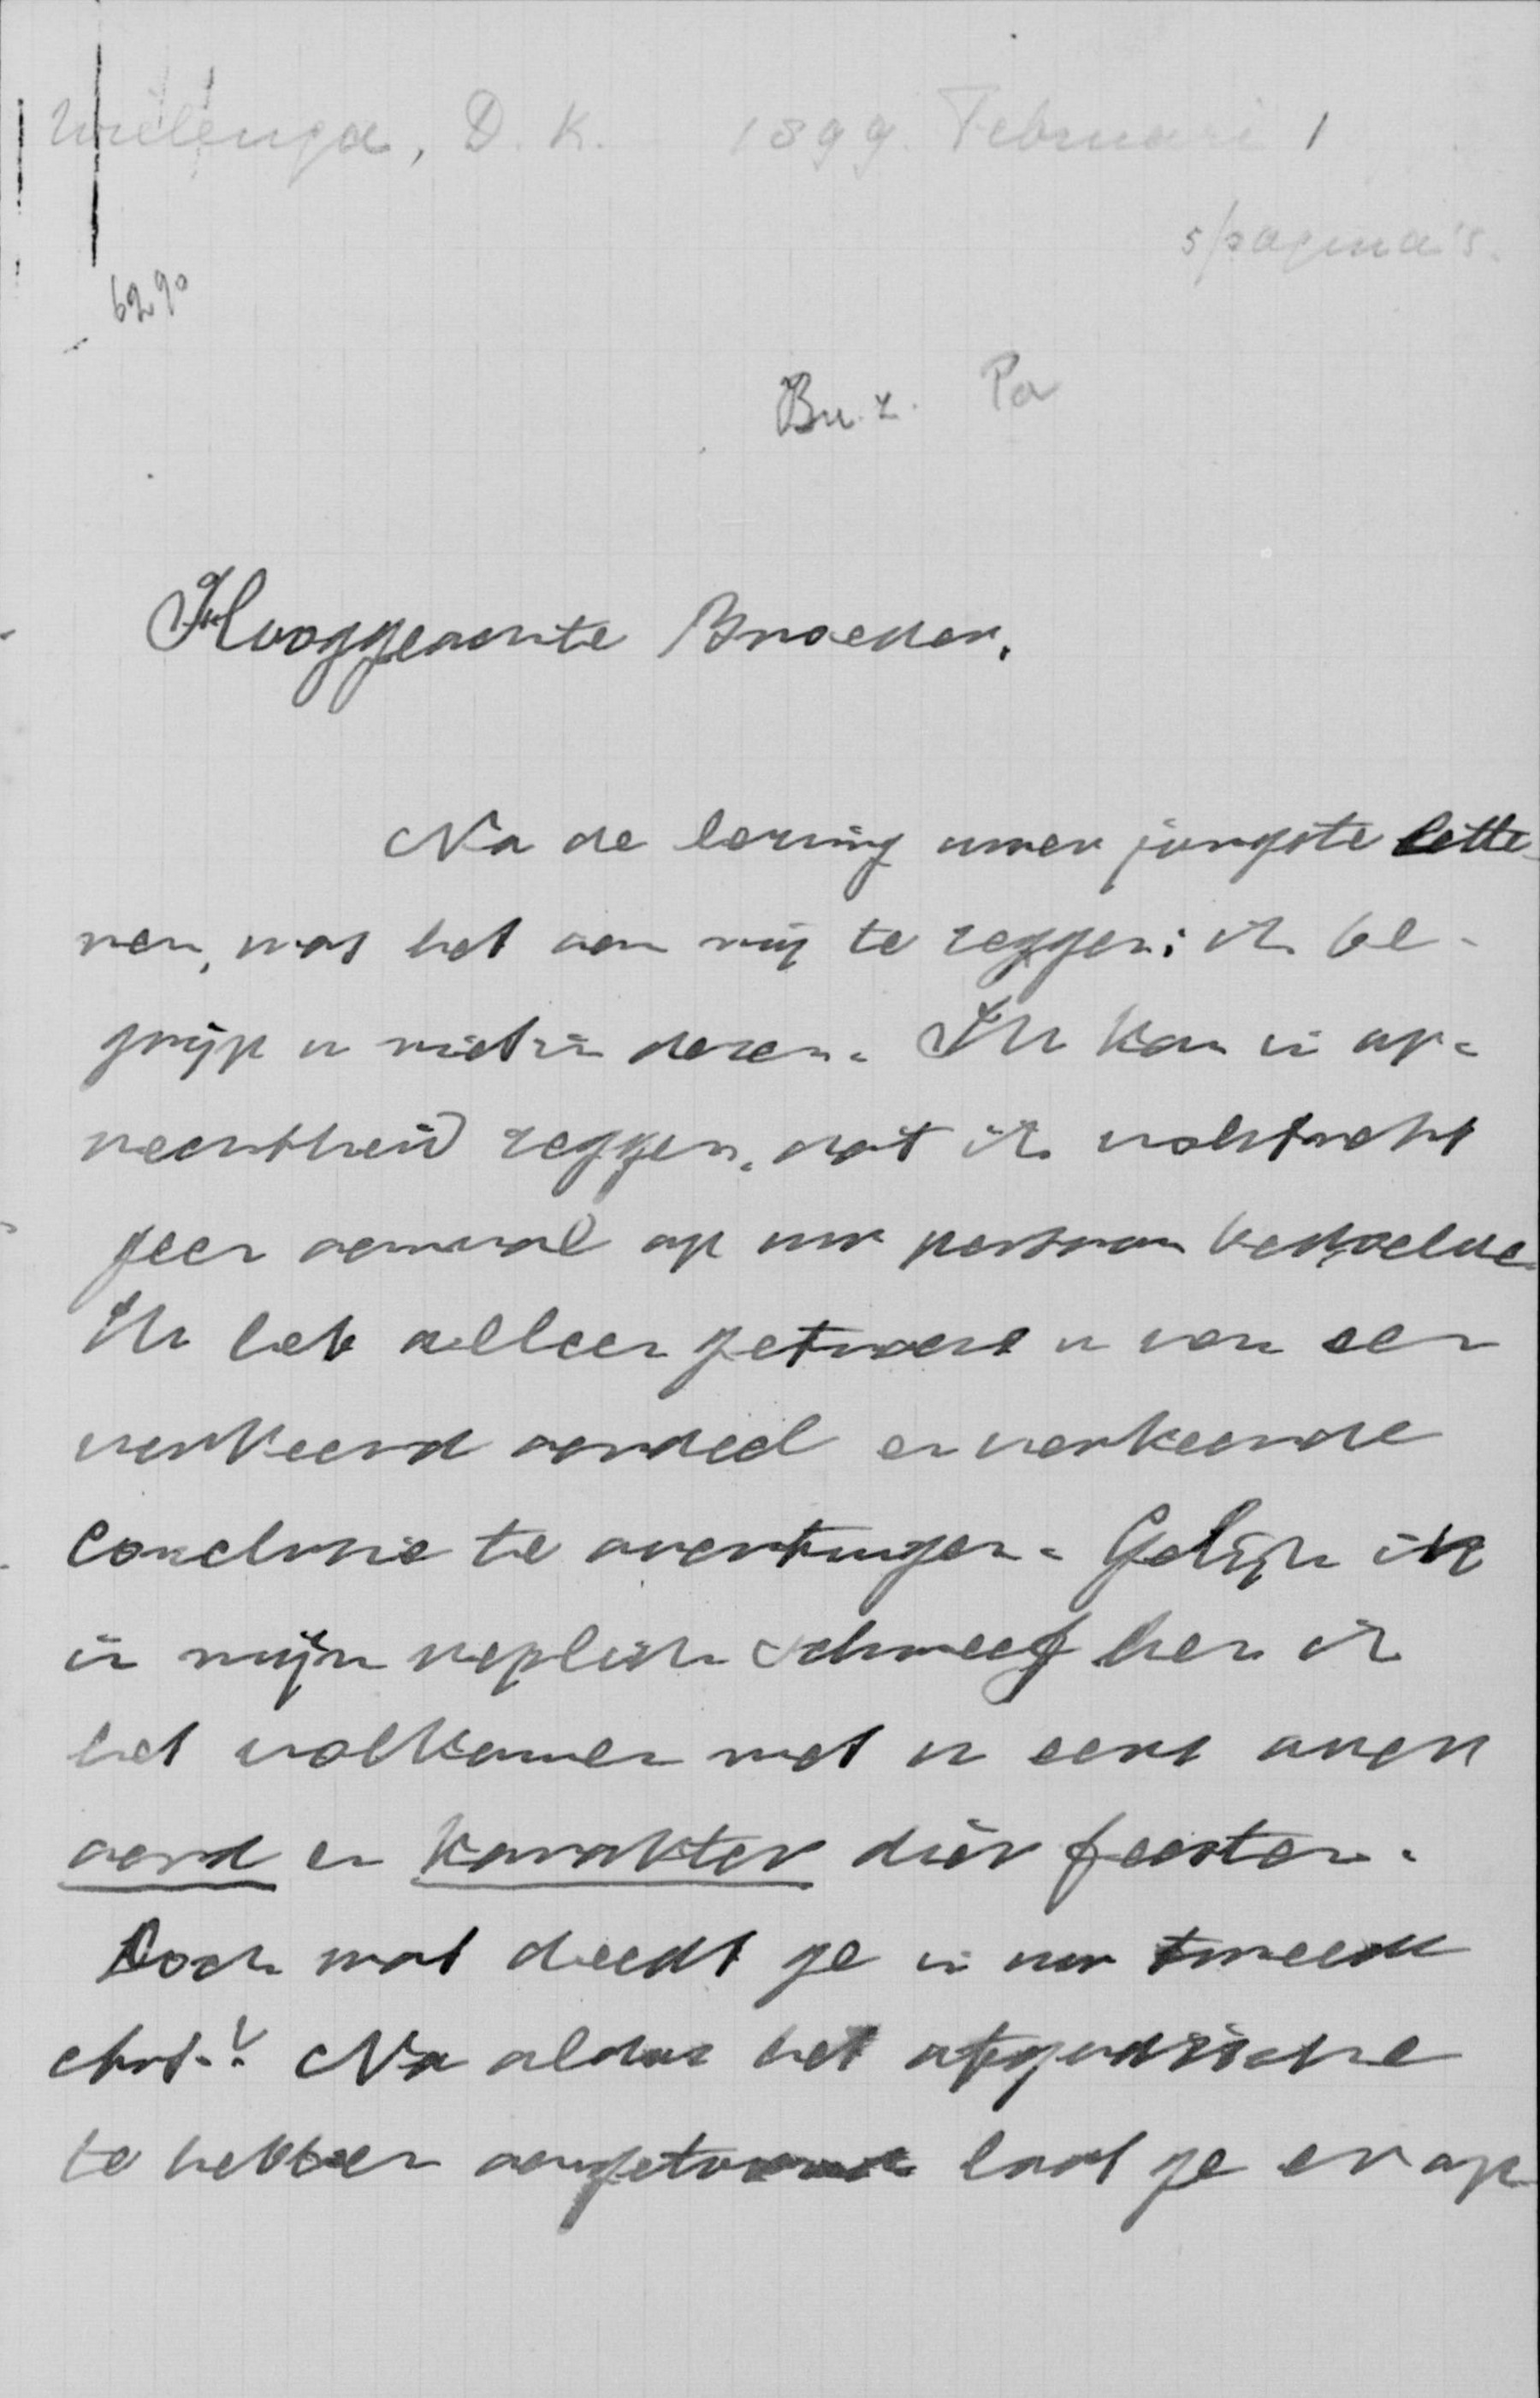 Wielenga, D. K. 1899 Februari 1
5 pagina's.
6290
Bu. z. Pa
Hooggeachte Broeder.
Na de lezing uwer jongste lette-
ren, was het aan mij te zeggen: ik be-
grijp u niet in dezen. Ik kan in op-
rechtheid zeggen, dat ik volstrekt
geen aanval op uw persoon bedoelde.
Ik heb alleen getracht u van een
verkeerd oordeel en verkeerde
conclusie te overtuigen. Gelijk ik
in mijn repliek schreef ben ik
het volkomen met u eens over
aard en karakter dier feesten.
Doch wat deedt ge in uw tweede
Na aldus het afgodische
te hebben aangetoond laat ge er op